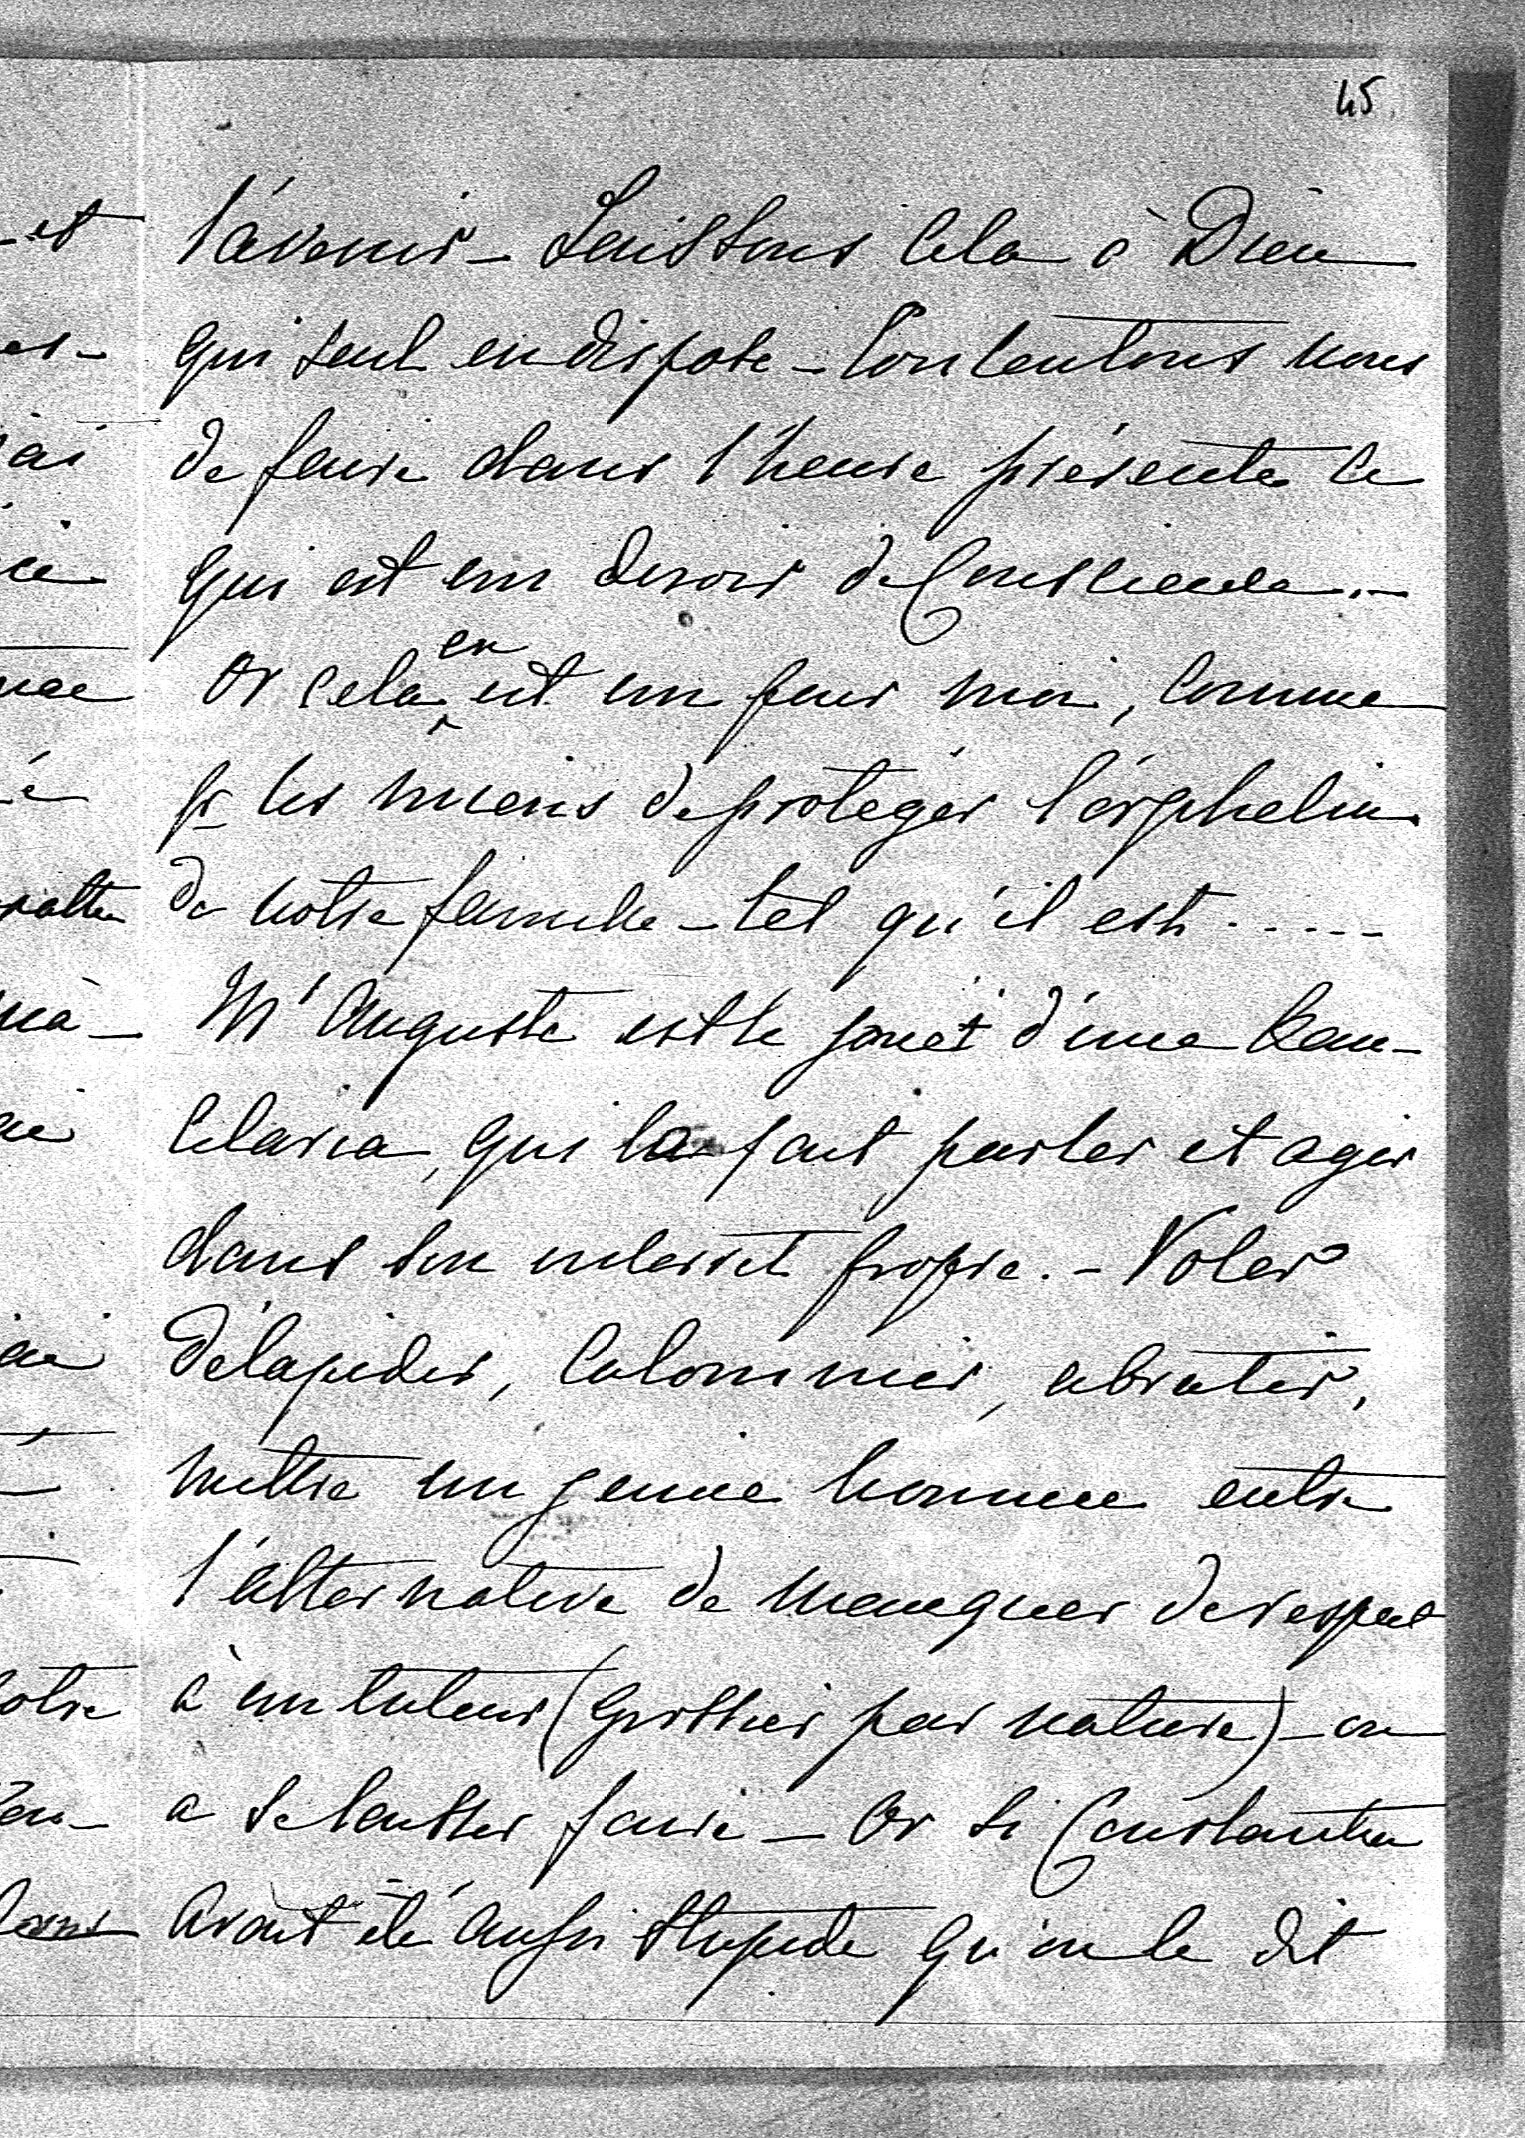 45
l'avenir - Laissons cela à Dieu
qui seul en dispose - Contentons nous
de faire dans l'heure présente ce
qui est un devoir de Conscience. -
en
Or cela est un pour moi, comme
pr les miens de protéger l'orphelin
de notre famille - tel qu'il est.....
Mr Auguste est le jouet d'une
qui la fait parler et agir
dans son interret propre. - Voler
délapider, Calomnier, abrutir,
mettre un jeune homme entre
l'alternative de manquer de respect
à un tuteur (grossier par nature) - ou
a se laisser faire - Or si Constantin
avait été aussi stupide qu'on le dit